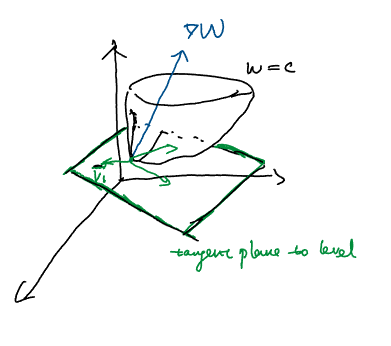 ∇W
W = C
V₁
tangent plane to level